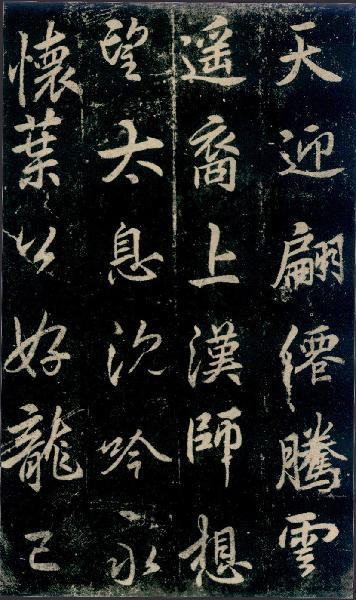 天迎翩僊騰雲
遥裔上漢師想
望太息沈吟永
懷葉公好龍己